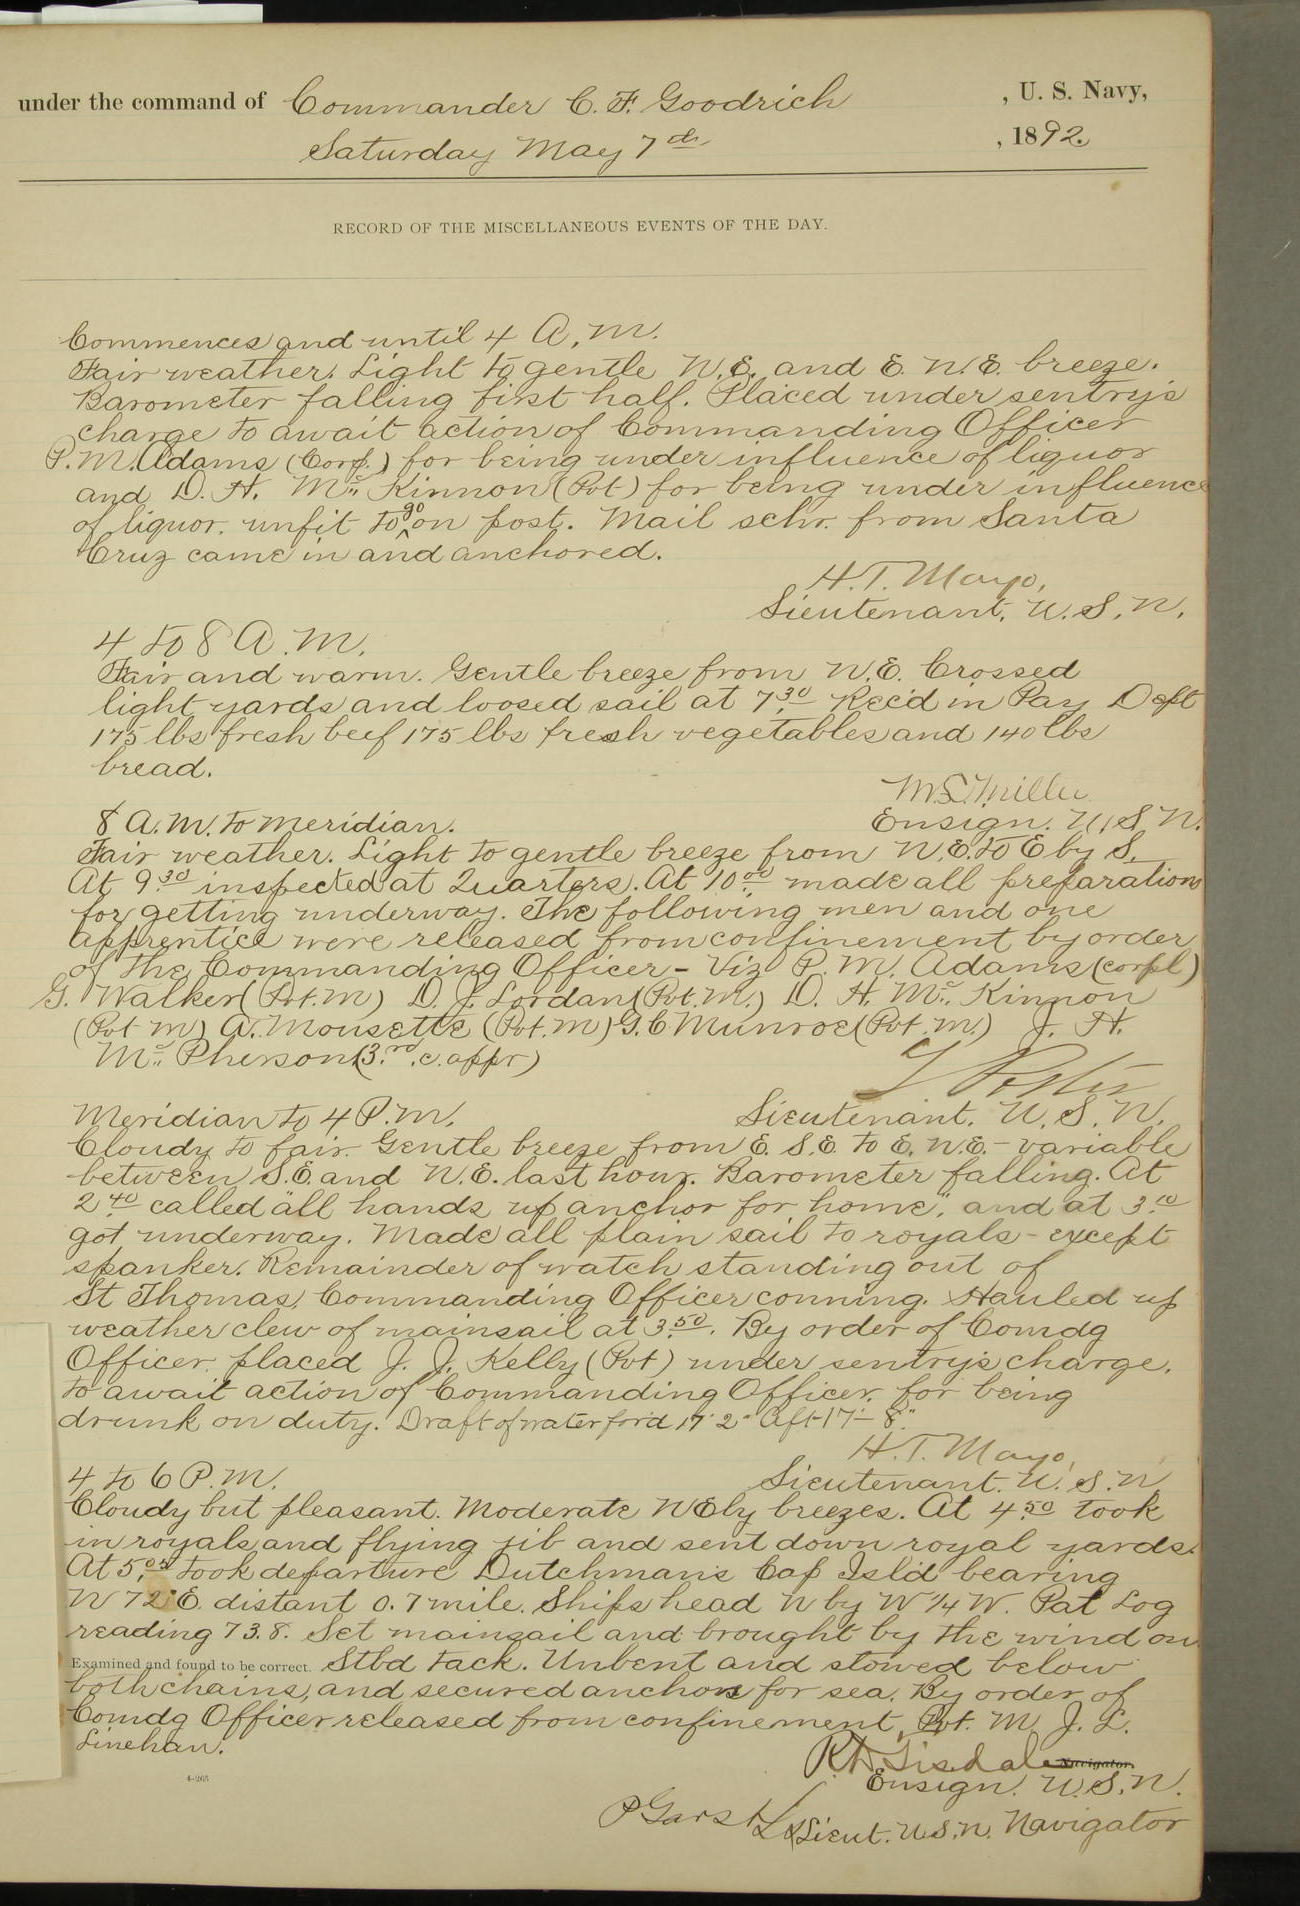 under the command of Commander C. F. Goodrich , U. S. Navy,
Saturday May 7th , 1892.
RECORD OF THE MISCELLANEOUS EVENTS OF THE DAY.
Commences and until 4 A. M.
Fair weather. Light to gentle N.E. and E. N.E. breeze.
Barometer falling first half. Placed under sentry's
charge to await action of Commanding Officer
P. M. Adams (Corp.) for being under influence of liquor
and D. H. Mc Kinnon (Pvt) for being under influence
of liquor. unfit to go on post. Mail schr. from Santa
Cruz came in and anchored.
H. T. Mayo,
Lieutenant. U. S. N.
4 to 8 A. M.
Fair and warm. Gentle breeze from N.E. Crossed
light yards and loosed sail at 7.30 Rec'd in Pay Dept
175 lbs fresh beef 175 lbs fresh vegetables and 140 lbs
bread.
M. S. Miller
Ensign. U. S. N.
8 A. M. to meridian.
Fair weather. Light to gentle breeze from N.E. to E by S.
At 9.30 inspected at Quarters. At 10.00 made all preparations
for getting underway. The following men and one
apprentice were released from confinement by order
of the Commanding Officer - Viz P. M. Adams (corpl)
G. Walker (Pvt. M) D. J. Lordan (Pvt. M.) D. H. Mc Kinnon
(Pvt M) A. Mousette (Pvt. M) G. C Munroe (Pvt. M.) J. H.
Mc Pherson (3rd. c. appr)
Lieutenant. U. S. N.
Meridian to 4 P. M.
Cloudy to fair. Gentle breeze from E. S.E. to E. N.E. - variable
between S.E. and N.E. last hour. Barometer falling. At
2.40 called "all hands up anchor for home", and at 3.10
got underway. Made all plain sail to royals - except
spanker. Remainder of watch standing out of
St Thomas, Commanding Officer conning. Hauled up
weather clew of mainsail at 3.50. By order of Comdg
Officer. placed J. J. Kelly (Pvt) under sentry's charge.
to await action of Commanding Officer. for being
drunk on duty. Draft of water for'd 17' 2" Aft 17' - 8"
H. T. Mayo,
Lieutenant. U. S. N.
4 to 6 P. M.
Cloudy but pleasant. Moderate NEly breezes. At 4.50 took
in royals and flying jib and sent down royal yards.
At 5.05 took departure Dutchman's Cap Isl'd bearing
N 72° E. distant 0.7 mile. Ships head N by W 1/4 W. Pat Log
reading 73.8. Set mainsail and brought by the wind on
Examined and found to be correct. Stbd tack. Unbent and stowed below
both chains, and secured anchors for sea. By order of
Comdg Officer released from confinement, Pvt. M J. L.
Linehan.
R H Tisdale Navigator.
Ensign. U. S. N.
4-265
P Garst Lieut. U. S. N. Navigator